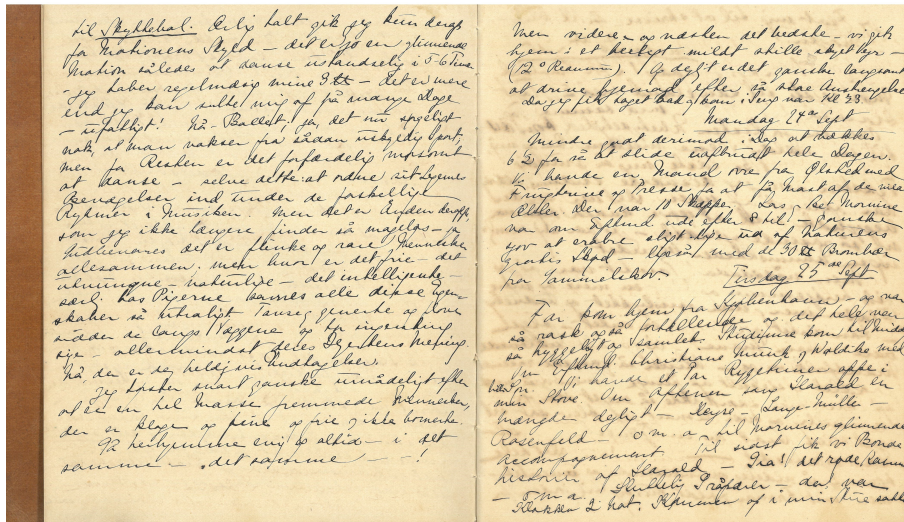 til Skyttebal. Ærlig talt gik jeg kun derhen
for Motionens Skyld – det er jo en glimrende
Motion således at danse uafladelig i 5-6 Timer
– jeg taber regelmæssig mine 3 – det er mere
end jeg kan sulte mig af på mange Dage
– ufatteligt! Nå – Ballet! ja, det var spøgeligt
nok, at man vokser fra sådan uskyldig Sport,
men for Resten er det forfærdelig morsomt
at danse – selve dette: at ordne sit Legemes
Bevægelser ind under de forskellige
Rytmer i Musiken. Men det er Ånden derovre
som jeg ikke længere finder så mageløs – jo
det er flinke og rare Mennesker
allesammen; men hvor er det frie – det
– naturlige – det intelligente –
særl. hos Pigerne savnes alle disse Egen-
skaber så totalt Tavse, generte og
sidder de langs Væggene og tør ingenting
sige – allermindst deres Hjertens Mening.
Nå, der er dog heldigvis Undtagelser.
Jeg tørster snart ganske umådeligt efter
at se en hel Masse fremmede Mennesker,
der er kloge og fine og frie og ikke bornerte.
Gå herhjemme evig og altid – i det
samme – "det samme – – !
Men videre – og næsten det bedste – vi gik
hjem i et bælgt mildt stille
(12° Reaumur). Og dejligt er det ganske langsomt
at drive hjemad efter så store Anstrengelser
Da jeg fik taget Bad og kom i Seng var Kl 23.
Mandag 24de Sept
Mindre godt derimod i Dag at vækkes
6½ for så at slide uafbrudt hele Dagen.
Vi havde en Mand ovre fra Ølsted med
Frugtkværne og Presse for at få Most af de
Æbler. Der var 10 Skæpper. Las, Mornine
var om Efterm. ude efter 8 til – ganske
sjov at erobre sligt lige ud af Naturens
gratis Skød – ligeså med de 30 Brombær
fra Sammelskov.
Tirsdag 25de Sept
Far kom hjem fra Kjøbenhavn – og var
så rask også fortællende og det hele var
så hyggeligt og samlet. kom til Middag
Om Efterm. Christiane Munck og Woldike med
Vi havde et Par Hyggetimer oppe i
min Stove. Om Aftenen sang Harald en
mængde dejligt – Heyse – Lange-Müller –
Rosenfeld – o m. a. til Mornines glimrende
accompagnement Til sidst fik vi Bonde
historier af Harald – Gia! det røde Kammer
– o m. a. Præster – der var
Klokken 2 Nat.